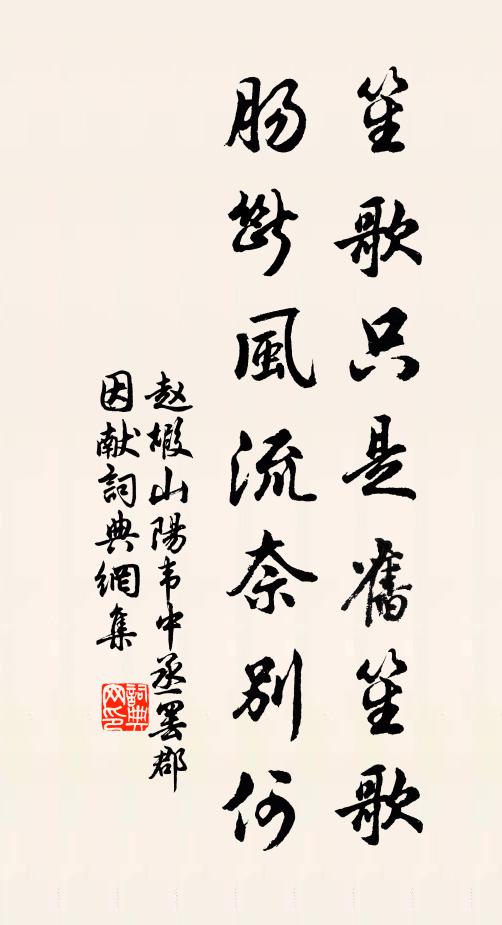 笙歌只是舊笙歌
肠斷風流奈别何
赵嘏山陽韦中丞罢郡
因献詞典網集
詞典网印